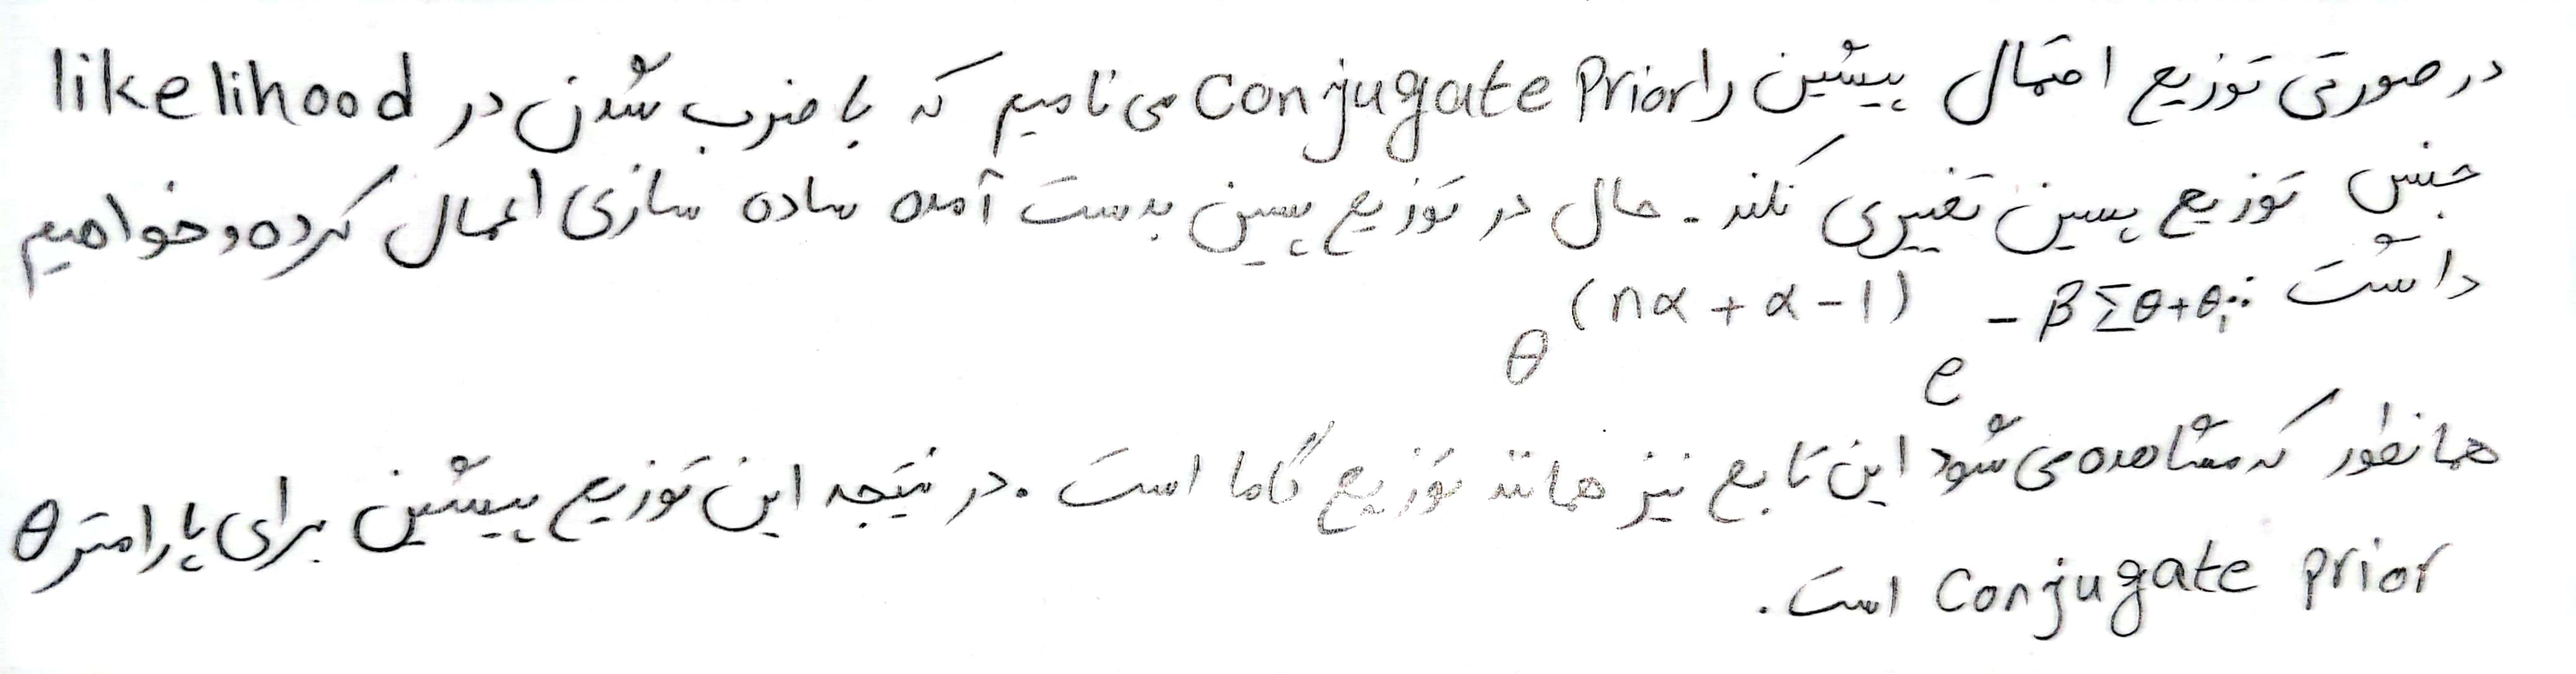 در صورتی توزیع احتمال پیشین را Conjugate Prior می نامیم که با ضرب شدن در likelihood
جنس توزیع پسین تغییری نکند. حال در توزیع پسین بدست آمده ساده سازی اعمال کرده و خواهیم
داشت:
θ^(nα + α - 1) e^(-βΣθ+θ_i)
همانطور که مشاهده می شود این تابع نیز همانند توزیع گاما است. در نتیجه این توزیع پیشین برای پارامتر θ
Conjugate prior است.